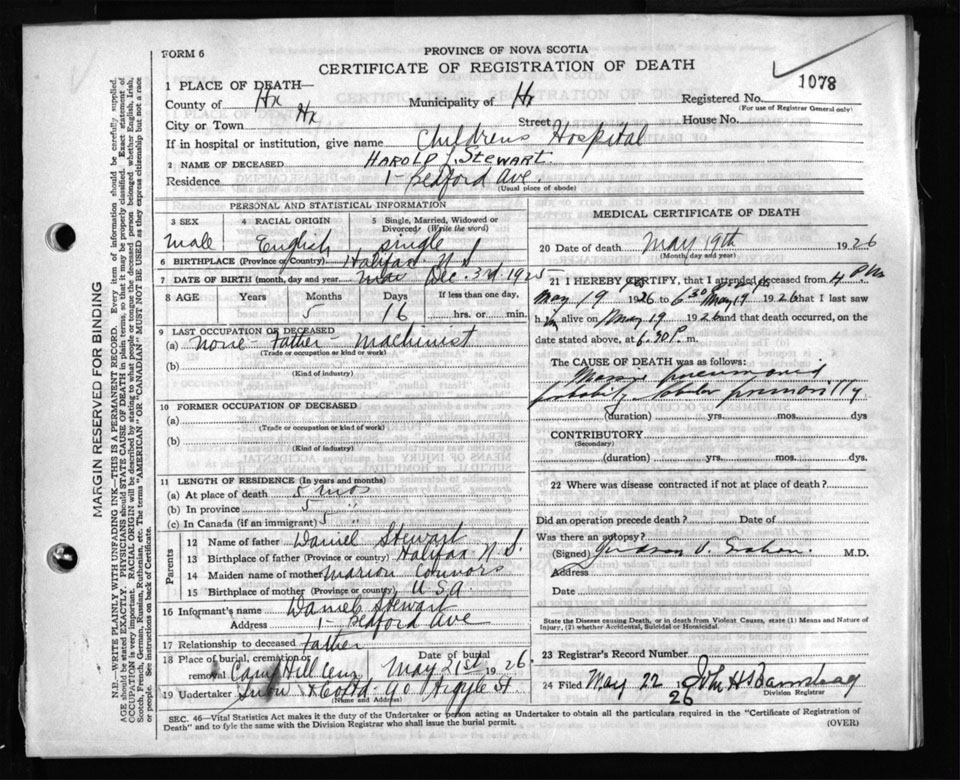 FORM 6
PROVINCE OF NOVA SCOTIA
CERTIFICATE OF REGISTRATION OF DEATH
1078
1 PLACE OF DEATH—
County of Hx Municipality of Hx Registered No.
(For use of Registrar General only)
City or Town Hx Street House No.
If in hospital or institution, give name Childrens Hospital
2 NAME OF DECEASED HAROLD J. STEWART.
Residence 1- Bedford Ave
(Usual place of abode)
PERSONAL AND STATISTICAL INFORMATION
3 SEX 4 RACIAL ORIGIN 5 Single, Married, Widowed or Divorced? (Write the word)
Male English single
6 BIRTHPLACE (Province or Country) Halifax N S
7 DATE OF BIRTH (month, day and year) Dec. 3rd 1925
8 AGE Years Months Days If less than one day,
5 16 hrs. or min.
9 LAST OCCUPATION OF DECEASED
(a) None - Father - Machinist
(Trade or occupation or kind or work)
(b)
(Kind of industry)
10 FORMER OCCUPATION OF DECEASED
(a)
(Trade or occupation or kind or work)
(b)
(Kind of industry)
11 LENGTH OF RESIDENCE (In years and months)
(a) At place of death 5 mos
(b) In province 5 "
(c) In Canada (if an immigrant) 5 "
Parents
12 Name of father Daniel Stewart
13 Birthplace of father (Province or country) Halifax N S.
14 Maiden name of mother Marion Connors
15 Birthplace of mother (Province or country) U.S.A.
16 Informant's name Daniel Stewart
Address 1- Bedford Ave
17 Relationship to deceased Father
18 Place of burial, cremation or removal Camp Hill Cem Date of burial May 21st 1926.
19 Undertaker Snow & Co Ltd - 90 Argyle St.
(Name and Address)
MEDICAL CERTIFICATE OF DEATH
20 Date of death May 19th 1926
(Month, day and year)
21 I HEREBY CERTIFY, that I attended deceased from 4 P.M.
May 19 1926 to 6 30 May 19 1926 that I last saw
him alive on May 19 1926 and that death occurred, on the
date stated above, at 6.30 P. m.
The CAUSE OF DEATH was as follows:
pneumonia
probably lobular primarily
(duration) yrs. mos. dys
CONTRIBUTORY
(Secondary)
(duration) yrs. mos. dys
22 Where was disease contracted if not at place of death?
Did an operation precede death? Date of
Was there an autopsy?
(Signed) M.D.
Address
Date
State the Disease causing Death, or in death from Violent Causes, state (1) Means and Nature of Injury, (2) whether Accidental, Suicidal or Homicidal.
23 Registrar's Record Number
24 Filed May 22 26 John H Barnstead
Division Registrar
SEC. 46—Vital Statistics Act makes it the duty of the Undertaker or person acting as Undertaker to obtain all the particulars required in the "Certificate of Registration of
Death" and to fyle the same with the Division Registrar who shall issue the burial permit.
(OVER)
MARGIN RESERVED FOR BINDING
N.B.—WRITE PLAINLY WITH UNFADING INK—THIS IS A PERMANENT RECORD. Every item of information should be carefully supplied.
AGE should be stated EXACTLY. PHYSICIANS should STATE CAUSE OF DEATH in plain terms, so that it may be properly classified. Exact statement of
OCCUPATION is very important. RACIAL ORIGIN will be described by stating to what people or tongue the deceased person belonged whether English, Irish,
Scotch, French, German, Russian, Ruthenian, etc. The terms "AMERICAN" OR "CANADIAN" MUST NOT BE USED as they express citizenship but not a race
or people. See instructions on back of Certificate.